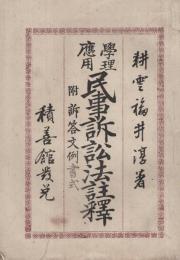 耕雲 福井淳著
學理
應用
民事訴訟法註釋
附 訴答文例書式
積善館發兌